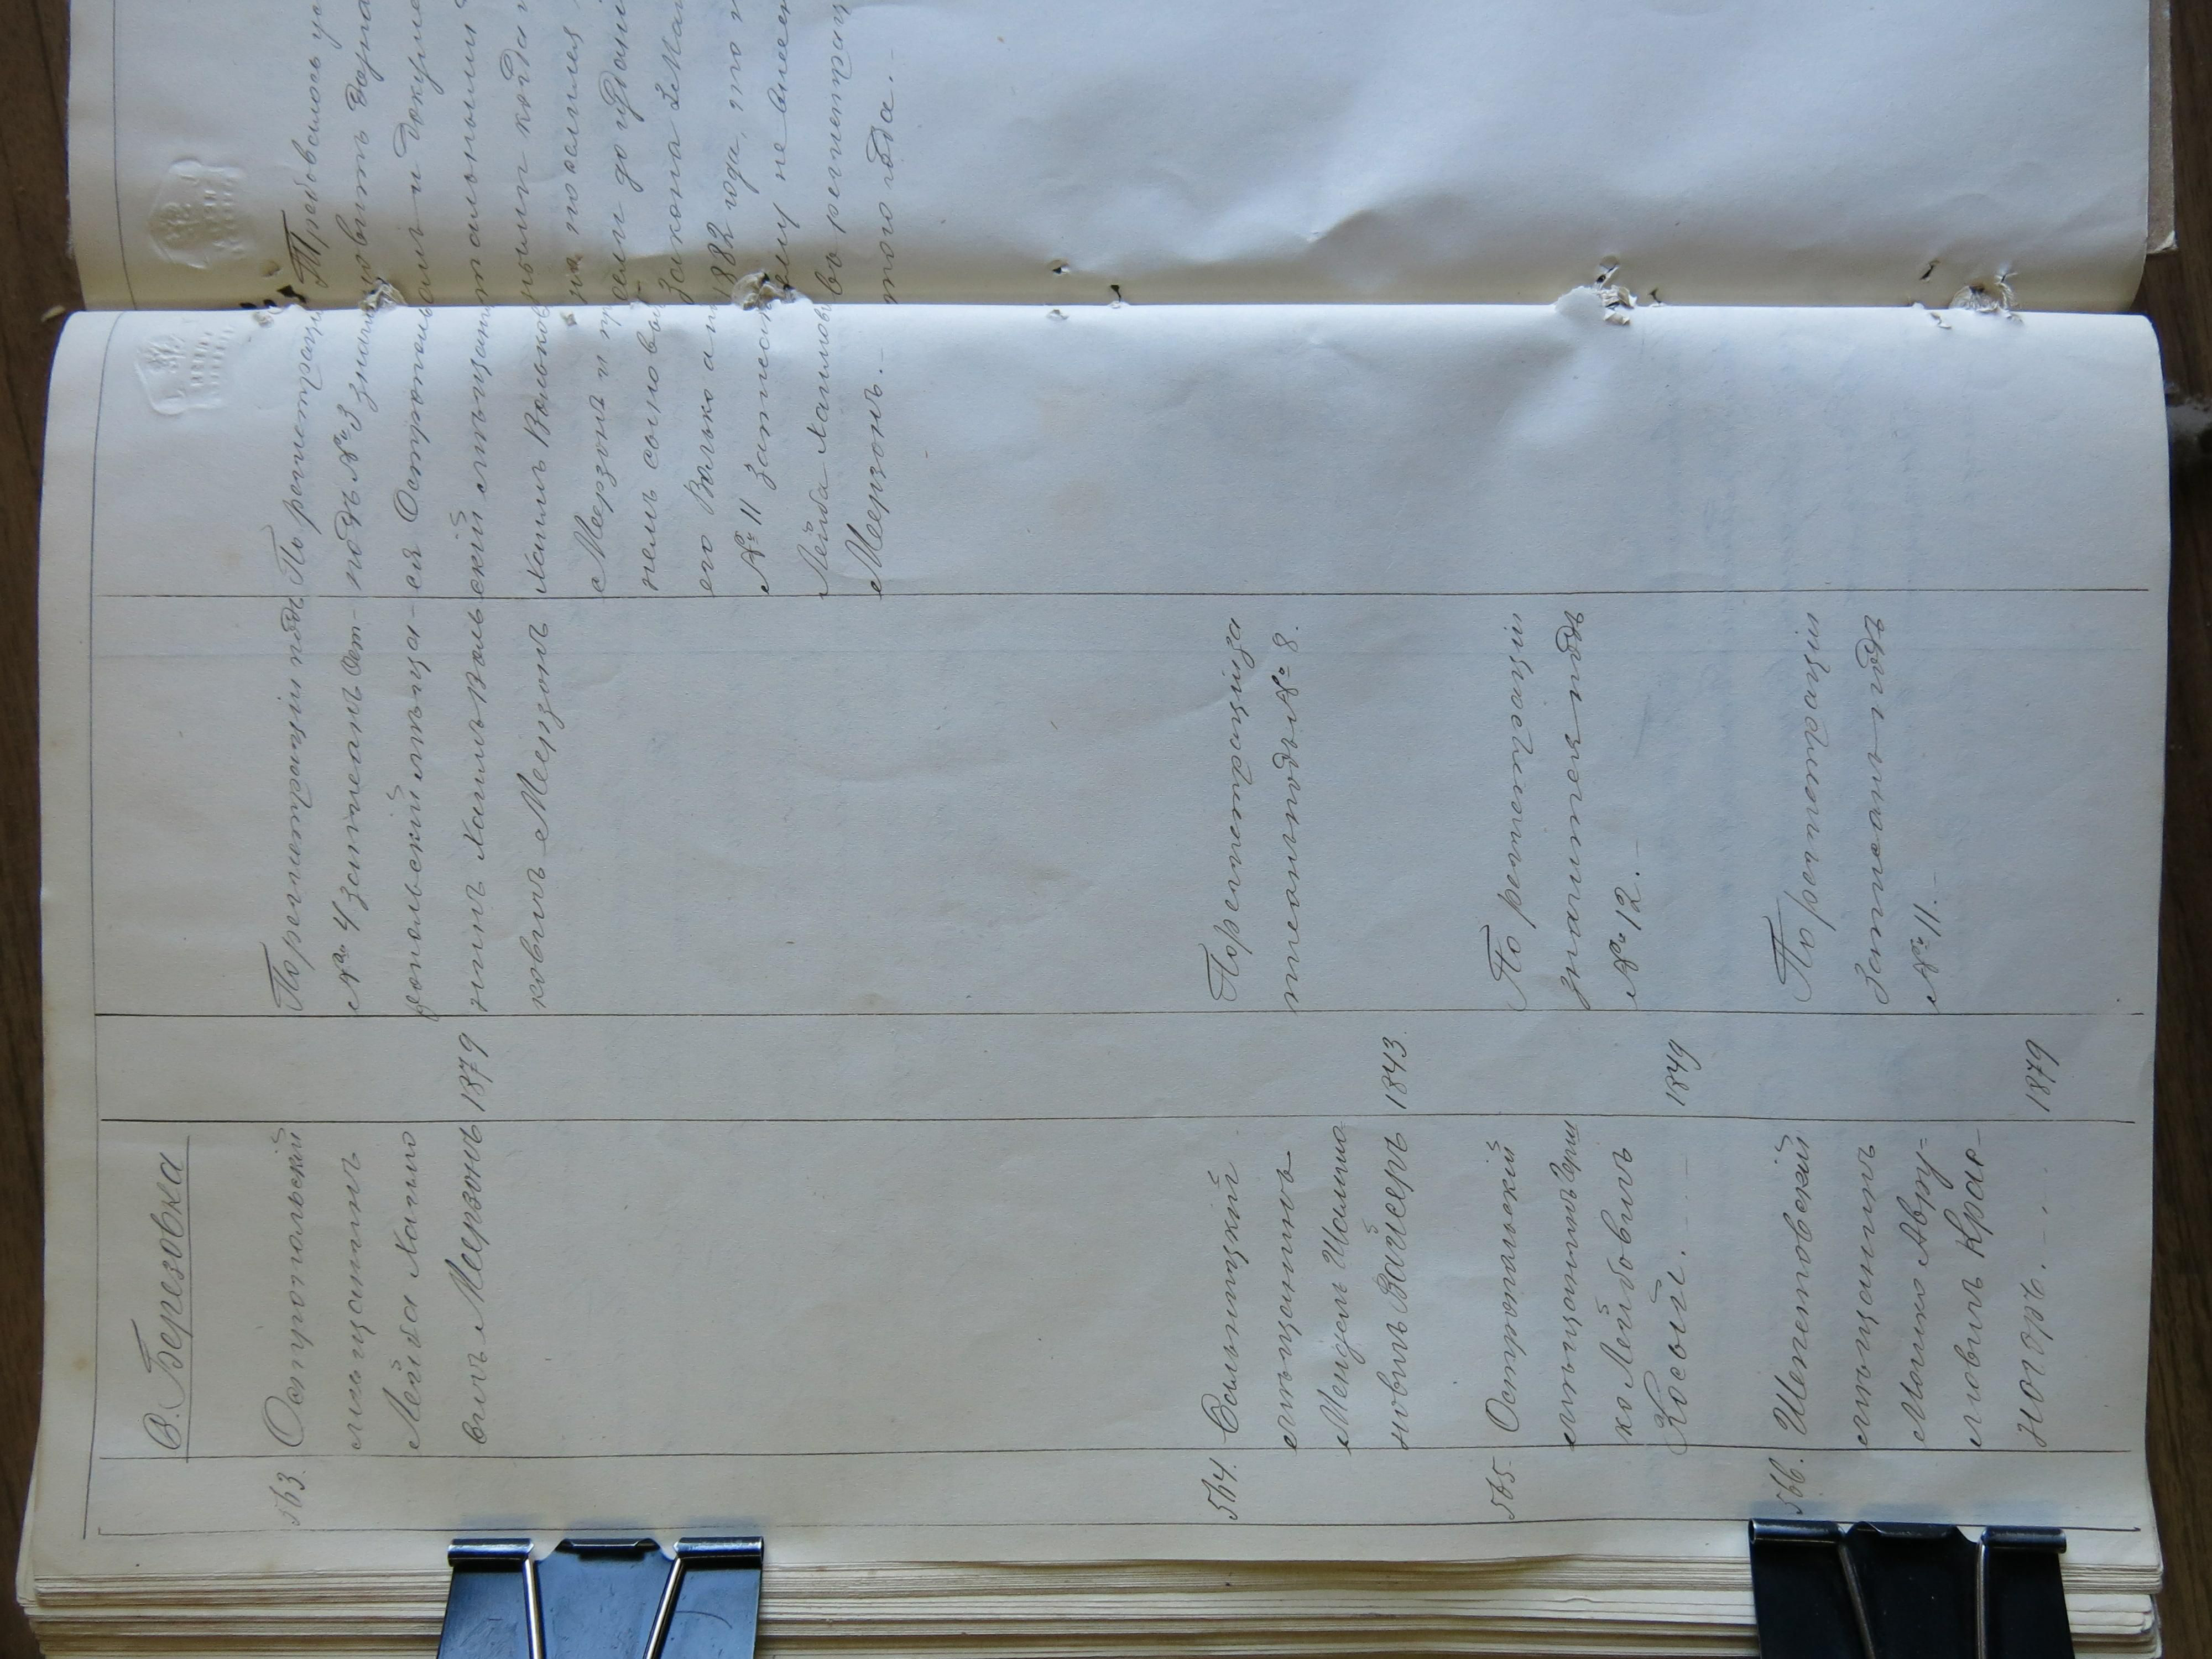 В. Березовка
563.
Остропольскій
мѣщанинъ
Лейба Хаимо
вичъ Меерзонъ 1879
По регистраціи подъ
№ 4 записанъ Ост-
ропольскій мѣща-
нинъ Хаимъ Воль
ковичъ Меерзонъ
По регистраціи
подъ № 3 значит
ся Острополь
скій мѣщанин
Хаимъ Вольков
Меерзонъ и при
немъ сыновья
его Волько и
№ 11 записан
Лейба Хаимов
Меерзонъ.-
Требовалось
вить
и докуме
тальными
рыми когда
на поселился
до изданія
Закона 3 Мая
1882 года, что
ему не внесен
въ регистрац
того года.-
564.
Сальницкій
мѣщанинъ
Мендель Шлимо
новичъ Вайсеръ 1843.
По регистраціи за
писанъ подъ № 8.
565.
Остропольскій
мѣщанинъ Герш
ко Лейбовичъ
Косый. - . - 1849
По регистраціи
значится подъ
№ 12.-
566.
Шепетовскій
мѣщанинъ
Мошко Авру=
мовичъ Крас-
ногоръ. - . - 1879
По регистраціи
Записанъ подъ
№ 11.-